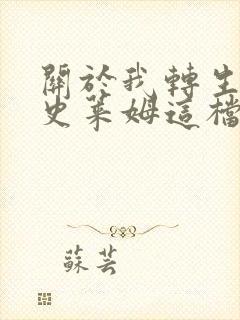 關於我轉生
史萊姆這檔
蘇芸